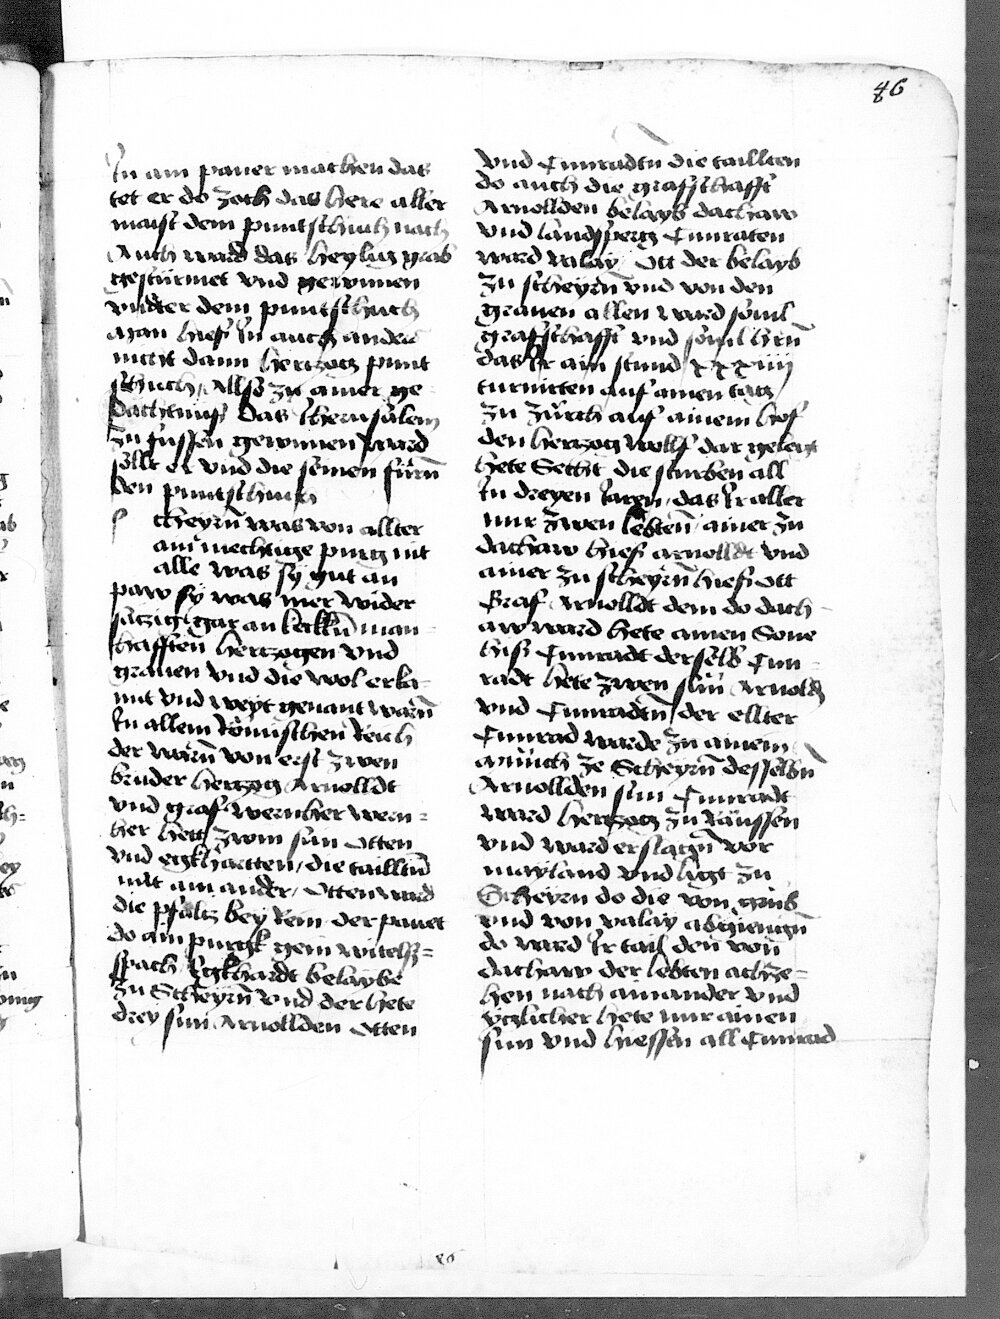 86
In ain pauer machen das
tet er do zoch das here aller
maist dem puntschuch nach
Auch ward das heylig grab
gestürmet vnd gewunnen
vnnder dem puntschuch
Man hieß In auch anders
nicht dann hertzog punt
schuch, Allso zu ainer ge-
dachtnuß das Iherusalem
zu füssen gewunnen ward
sollt er vnd die seinen fürn
den puntschuch
scheyrn was von allter
ain mechtige purg nit
alle was sy gut an
paw sy was mer wider
säczig gar an kerkkn man-
hafften hertzogen vnd
grauen vnd die wol erka-
nnt vnd weyt genant warn
In allem Römischen Reich
der warn von erst zwen
bruder hertzog Arnolldt
vnd graf wernher wern-
her hett zwen sün Otten
vnd egkharten, die tailltn
mit ain ander, Otten ward
die pfaltz bey Rein der pauet
do ain purgk gein witelß-
spach Egkhardt belaybe
zu Scheyrn vnd der hete
drey sün Arnollden Otten
vnd Cunradtn die taillten
do auch die graffschafft
Arnollden belayb dachaw
vnd landsperg Cunraten
ward valay Ott der belayb
zu scheyrn vnd von den
grauen allen ward souil
graffschafft vnd souil hrn
das Ir ain stund xxxiiij
turnirten auf ainen tag
zu zürch auf ainem hof
den hertzog wolff dar gelegt
hete Secht die sturben all
In dreyen Jaren, das Ir aller
nur zwen lebten, ainer zu
dachaw hieß arnolldt vnd
ainer zu scheyrn hieß ott
Graf Arnolldt dem do dach-
aw ward hete ainen Sone
hiß Cunradt derselb Cun-
radt hete zwen sün Arnold
vnd Cunradtn, der ellter
Cunrad warde zu ainem
münich ze Scheyrn desselbn
Arnollden sun Cunradt
ward hertzog zu Räussen
vnd ward erslagn vor
mayland vnd ligt zu
Scheyrn do die von grub
vnd von valay abgiengn
do ward Ir tail den von
dachaw der lebten achze-
hen nach ainander vnd
yczlicher hete nur ainen
sun vnd hiessen all Cunrad
86